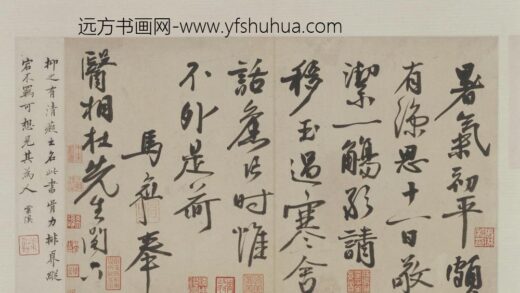 远方书画网- www.yfshuhua.com
暑氣初平頗
有涼思十一日敬
潔一觴請
移玉過寒舍
話舊片時惟
不外是荷
馬愈奉
醫相杜先生閣下
抑之有清癡之名此書骨力排奡蹤
宕不羈可想見其為人